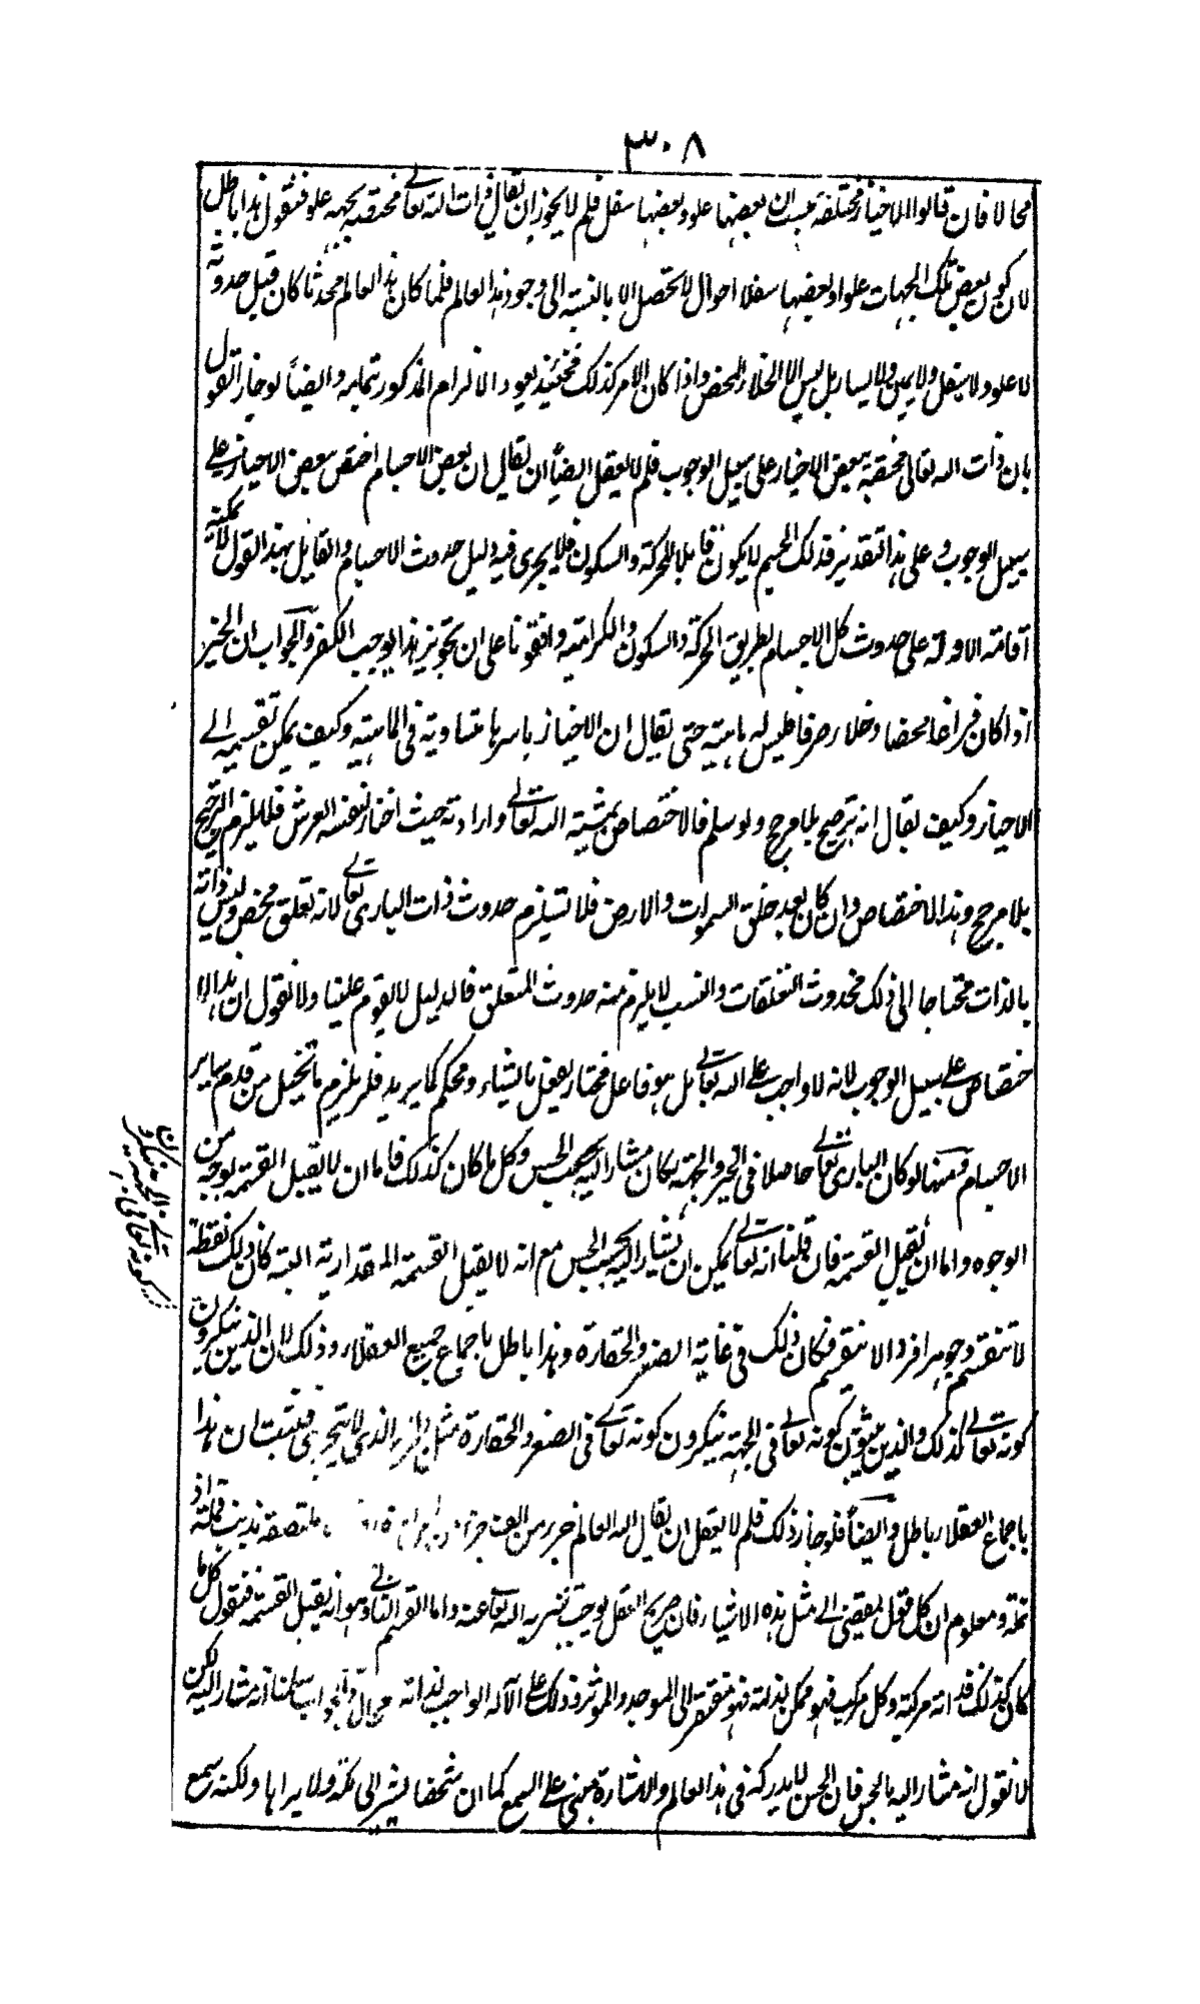 ٣٠٨
محالا فان قالوا الاحياز مختلفة بحسب ان بعضها علو وبعضها سفل فلم لا يجوز ان يقال ذات الله تعالى مختصة بجهة علو فنقول هذا باطل
لان كون بعض تلك الجهات علوا وبعضها سفلا احوال لا تحصل الا بالنسبة الى وجود هذا العالم فلما كان هذا العالم محدثا كان قبل حدوثه
لا علو ولا سفل ولا يمين ولا يسار بل ليس الا الخلاء المحض واذا كان الامر كذلك فحينئذ يعود الالزام المذكور بتمامه وايضاً لو جاز القول
بان ذات الله تعالى مختصة ببعض الاحياز على سبيل الوجوب فلم لا يعقل ايضاً ان يقال ان بعض الاجسام اختص ببعض الاحياز على
سبيل الوجوب وعلى هذا التقدير فذلك الجسم لا يكون قابلا للحركة والسكون فلا يجرى فيه دليل حدوث الاجسام والقايل بهذا القول لا يمكنه
اقامة الادلة على حدوث كل الاجسام بطريق الحركة والسكون والكرامية وافقونا على ان تجويز هذا يوجب الكفر والجواب ان الحيز
اذا كان فراغا محضا وخلاء صرفا فليس له ماهية حتى يقال ان الاحياز باسرها متساوية فى الماهية وكيف يمكن تقسيمه الى
الاحياز وكيف يقال انه ترجيح بلا مرجح ولو سلم فالاختصاص بمشية الله تعالى وارادته حيث اختار لنفسه العرش فلا يلزم الترجيح
بلا مرجح وهذا الاختصاص وان كان بعد خلق السموات والارض فلا تستلزم حدوث ذات البارى تعالى لانه تعلق محض وليس ذاته
بالذات محتاجا الى ذلك فحدوث التعلقات والنسب لا يلزم منه حدوث المتعلق فالدليل لا يقوم علينا ولا نقول ان هذا الا
ختصاص على سبيل الوجوب لانه لا واجب على الله تعالى بل هو فاعل مختار يفعل ما يشاء ويحكم كما يريد فلم يلزم ما تخيل من قدم ساير
الاجسام ومنها لو كان البارى تعالى حاصلا فى الحيز والجهة لكان مشارا اليه بحسب الحس وكل ما كان كذلك فاما ان لا يقبل القسمة بوجه من
الوجوه واما ان يقبل القسمة فان قلنا انه تعالى يمكن ان يشار اليه بحسب الحس مع انه لا يقبل القسمة المقدارية البتة كان ذلك نقطة
لا تنقسم وجوهرا فردا لا ينقسم فكان ذلك فى غاية الصغر والحقارة وهذا باطل باجماع جميع العقلاء وذلك لان الذين ينكرون
كونه تعالى كذلك والذين يثبتون كونه تعالى فى الجهة ينكرون كونه تعالى فى الصغر والحقارة مثل الجزء الذى لا يتجزى فثبت ان هذا
باجماع العقلاء باطل وايضاً فلو جاز ذلك فلم لا يعقل ان يقال اله العالم جزء من الف جزء ملتصقة بذنب قملة او
نملة ومعلوم ان كل قول يفضى الى مثل هذه الاشياء فان صريح العقل يوجب تنزيه الله تعالى عنه واما القسم الثانى وهو انه يقبل القسمة فنقول كل ما
كان كذلك فذاته مركبة وكل مركب فهو ممكن لذاته فهو مفتقر الى الموجد والمؤثر وذلك على الاله الواجب لذاته محال والجواب سلمنا انه مشار اليه لكن
لا نقول انه مشار اليه بالحس فان الحس لا يدركه فى هذا العالم والاشارة مبنى على السمع كما ان شخصا يشير الى مكة ولا يراها ولكنه سمع